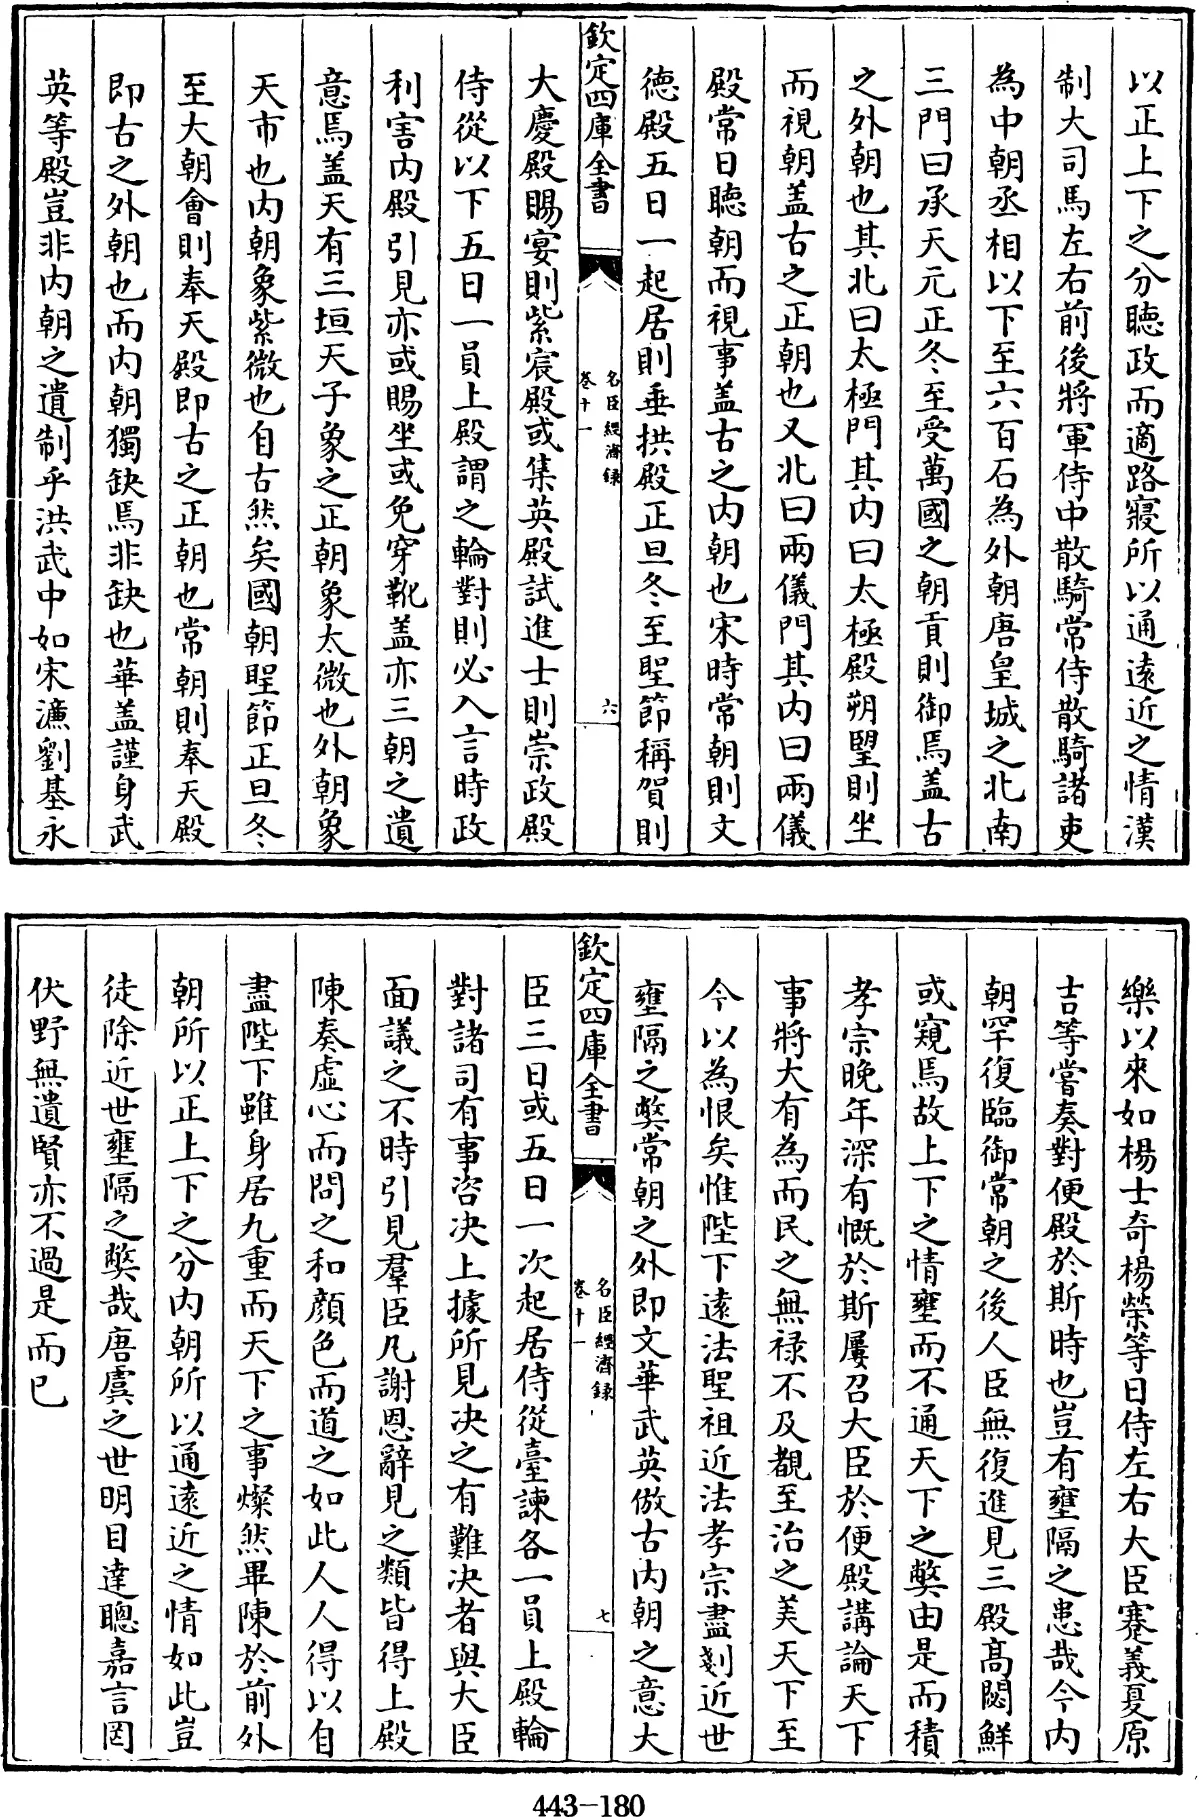 以正上下之分聽政而適路寢所以通遠近之情漢
制大司馬左右前後將軍侍中散騎常侍散騎諸吏
為中朝丞相以下至六百石為外朝唐皇城之北南
三門曰承天元正冬至受萬國之朝貢則御焉盖古
之外朝也其北曰太極門其内曰太極殿朔望則坐
而視朝盖古之正朝也又北曰兩儀門其内曰兩儀
殿常日聽朝而視事盖古之内朝也宋時常朝則文
德殿五日一起居則垂拱殿正旦冬至聖節稱賀則
欽定四庫全書
名臣經濟録
卷十一
六
大慶殿賜宴則紫宸殿或集英殿試進士則崇政殿
侍從以下五日一員上殿謂之輪對則必入言時政
利害内殿引見亦或賜坐或免穿靴盖亦三朝之遺
意焉盖天有三垣天子象之正朝象太微也外朝象
天市也内朝象紫微也自古然矣國朝聖節正旦冬
至大朝會則奉天殿即古之正朝也常朝則奉天殿
即古之外朝也而内朝獨缺焉非缺也華盖謹身武
英等殿豈非内朝之遺制乎洪武中如宋濂劉基永
樂以來如楊士奇楊榮等日侍左右大臣蹇義夏原
吉等嘗奏對便殿於斯時也豈有壅隔之患哉今内
朝罕復臨御常朝之後人臣無復進見三殿高閟鮮
或窺焉故上下之情壅而不通天下之獘由是而積
孝宗晚年深有慨於斯屢召大臣於便殿講論天下
事將大有為而民之無禄不及覩至治之美天下至
今以為恨矣惟陛下遠法聖祖近法孝宗盡剗近世
壅隔之獘常朝之外即文華武英倣古内朝之意大
欽定四庫全書
名臣經濟録
卷十一
七
臣三日或五日一次起居侍從臺諫各一員上殿輪
對諸司有事咨决上據所見决之有難决者與大臣
面議之不時引見羣臣凡謝恩辭見之類皆得上殿
陳奏虛心而問之和顔色而道之如此人人得以自
盡陛下雖身居九重而天下之事燦然畢陳於前外
朝所以正上下之分内朝所以通遠近之情如此豈
徒除近世壅隔之獘哉唐虞之世明目達聰嘉言罔
伏野無遺賢亦不過是而已
443-180